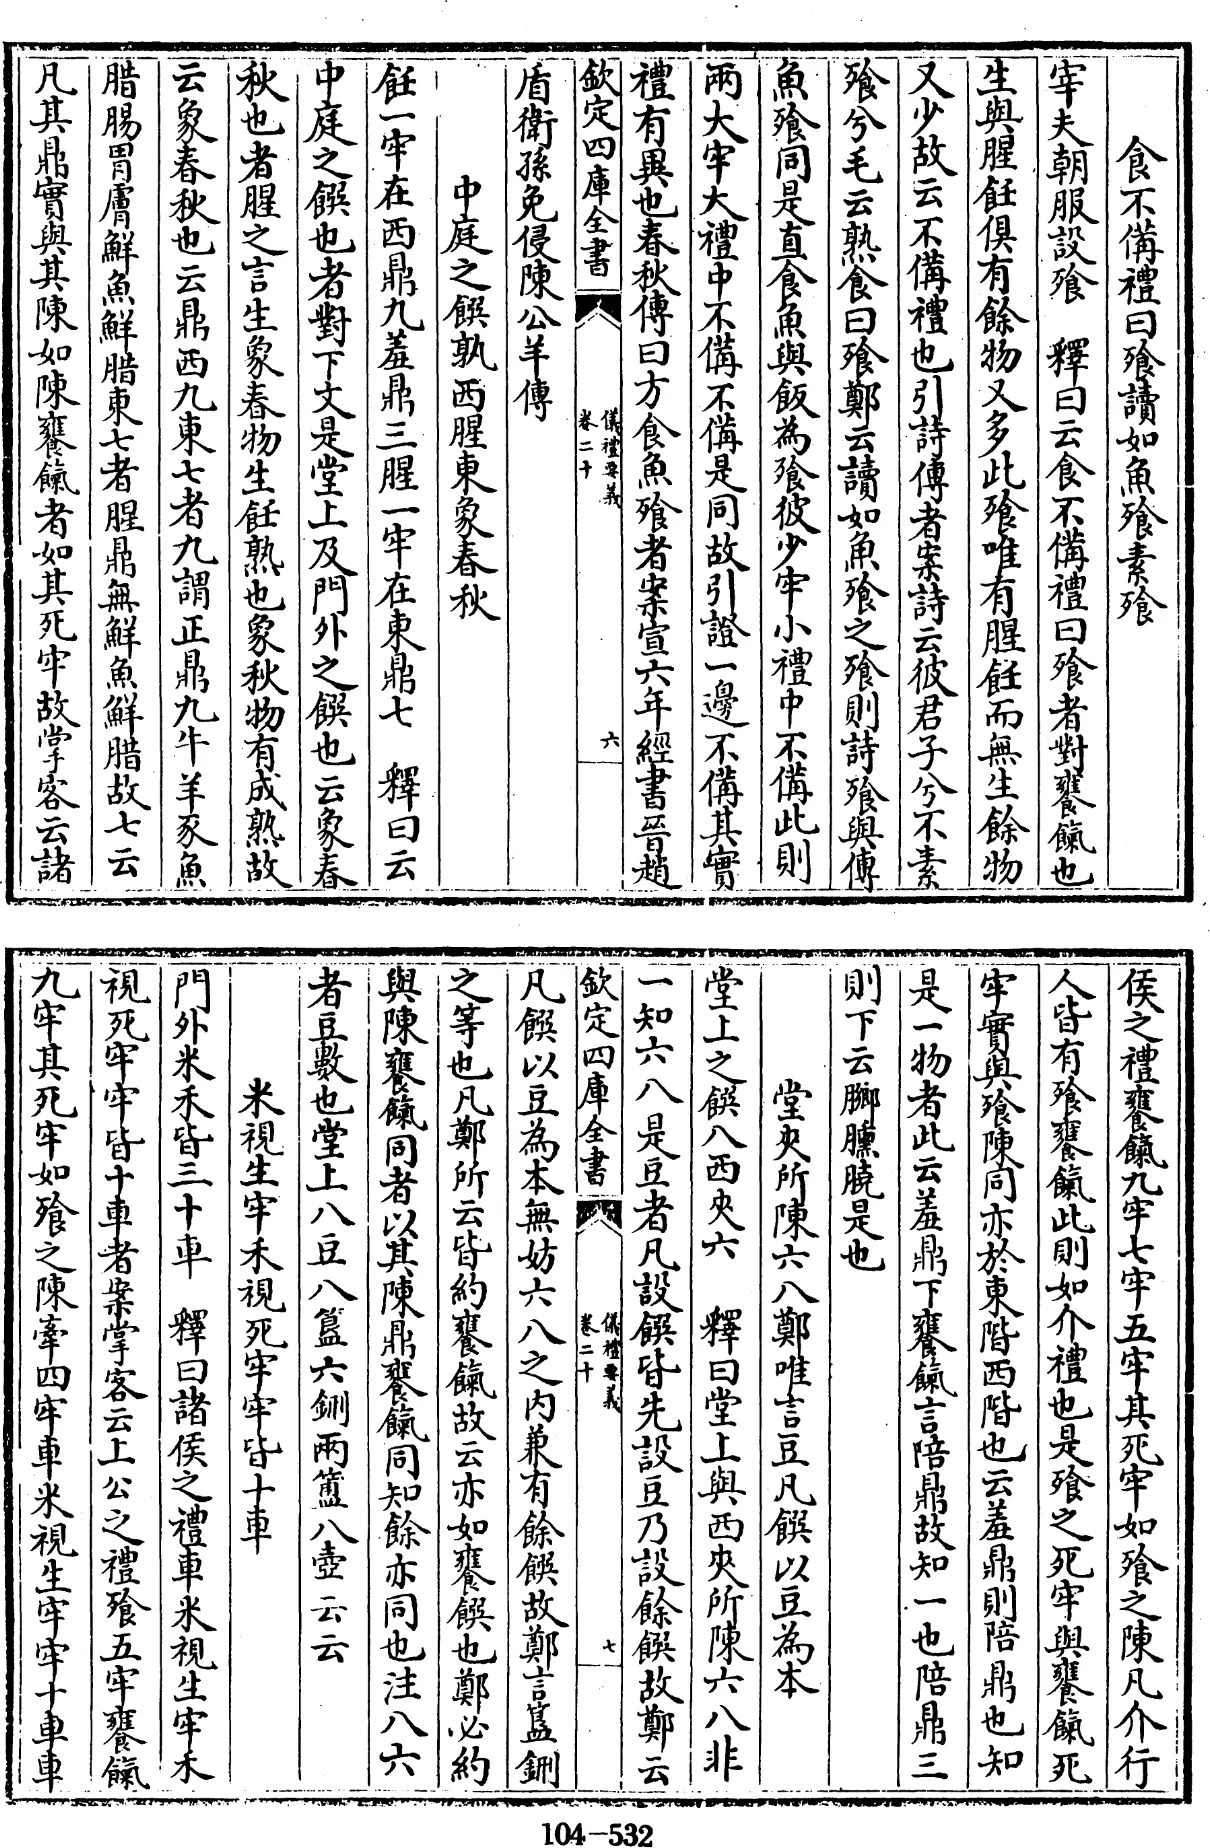 食不備禮曰飱讀如魚飱素飱
宰夫朝服設飱　釋曰云食不備禮曰飱者對饔餼也
生與腥飪俱有餘物又多此飱唯有腥飪而無生餘物
又少故云不備禮也引詩傳者案詩云彼君子兮不素
飱兮毛云熟食曰飱鄭云讀如魚飱之飱則詩飱與傳
魚飱同是直食魚與飯為飱彼少牢小禮中不備此則
兩大牢大禮中不備不備是同故引證一邊不備其實
禮有異也春秋傳曰方食魚飱者案宣六年經書晉趙
欽定四庫全書
儀禮要義
卷二十
六
盾衛孫免侵陳公羊傳
中庭之饌孰西腥東象春秋
飪一牢在西鼎九羞鼎三腥一牢在東鼎七　釋曰云
中庭之饌也者對下文是堂上及門外之饌也云象春
秋也者腥之言生象春物生飪熟也象秋物有成熟故
云象春秋也云鼎西九東七者九謂正鼎九牛羊豕魚
腊腸胃膚鮮魚鮮腊東七者腥鼎無鮮魚鮮腊故七云
凡其鼎實與其陳如陳饔餼者如其死牢故掌客云諸
侯之禮饔餼九牢七牢五牢其死牢如飱之陳凡介行
人皆有飱饔餼此則如介禮也是飱之死牢與饔餼死
牢實與飱陳同亦於東階西階也云羞鼎則陪鼎也知
是一物者此云羞鼎下饔餼言陪鼎故知一也陪鼎三
則下云膷臐膮是也
堂夾所陳六八鄭唯言豆凡饌以豆為本
堂上之饌八西夾六　釋曰堂上與西夾所陳六八非
一知六八是豆者凡設饌皆先設豆乃設餘饌故鄭云
欽定四庫全書
儀禮要義
卷二十
七
凡饌以豆為本無妨六八之內兼有餘饌故鄭言簋鉶
之等也凡鄭所云皆約饔餼故云亦如饔饌也鄭必約
與陳饔餼同者以其陳鼎饔餼同知餘亦同也注八六
者豆數也堂上八豆八簋六鉶兩簠八壺云云
米視生牢禾視死牢牢皆十車
門外米禾皆三十車　釋曰諸侯之禮車米視生牢禾
視死牢牢皆十車者案掌客云上公之禮飱五牢饔餼
九牢其死牢如飱之陳牽四牢車米視生牢牢十車車
104-532